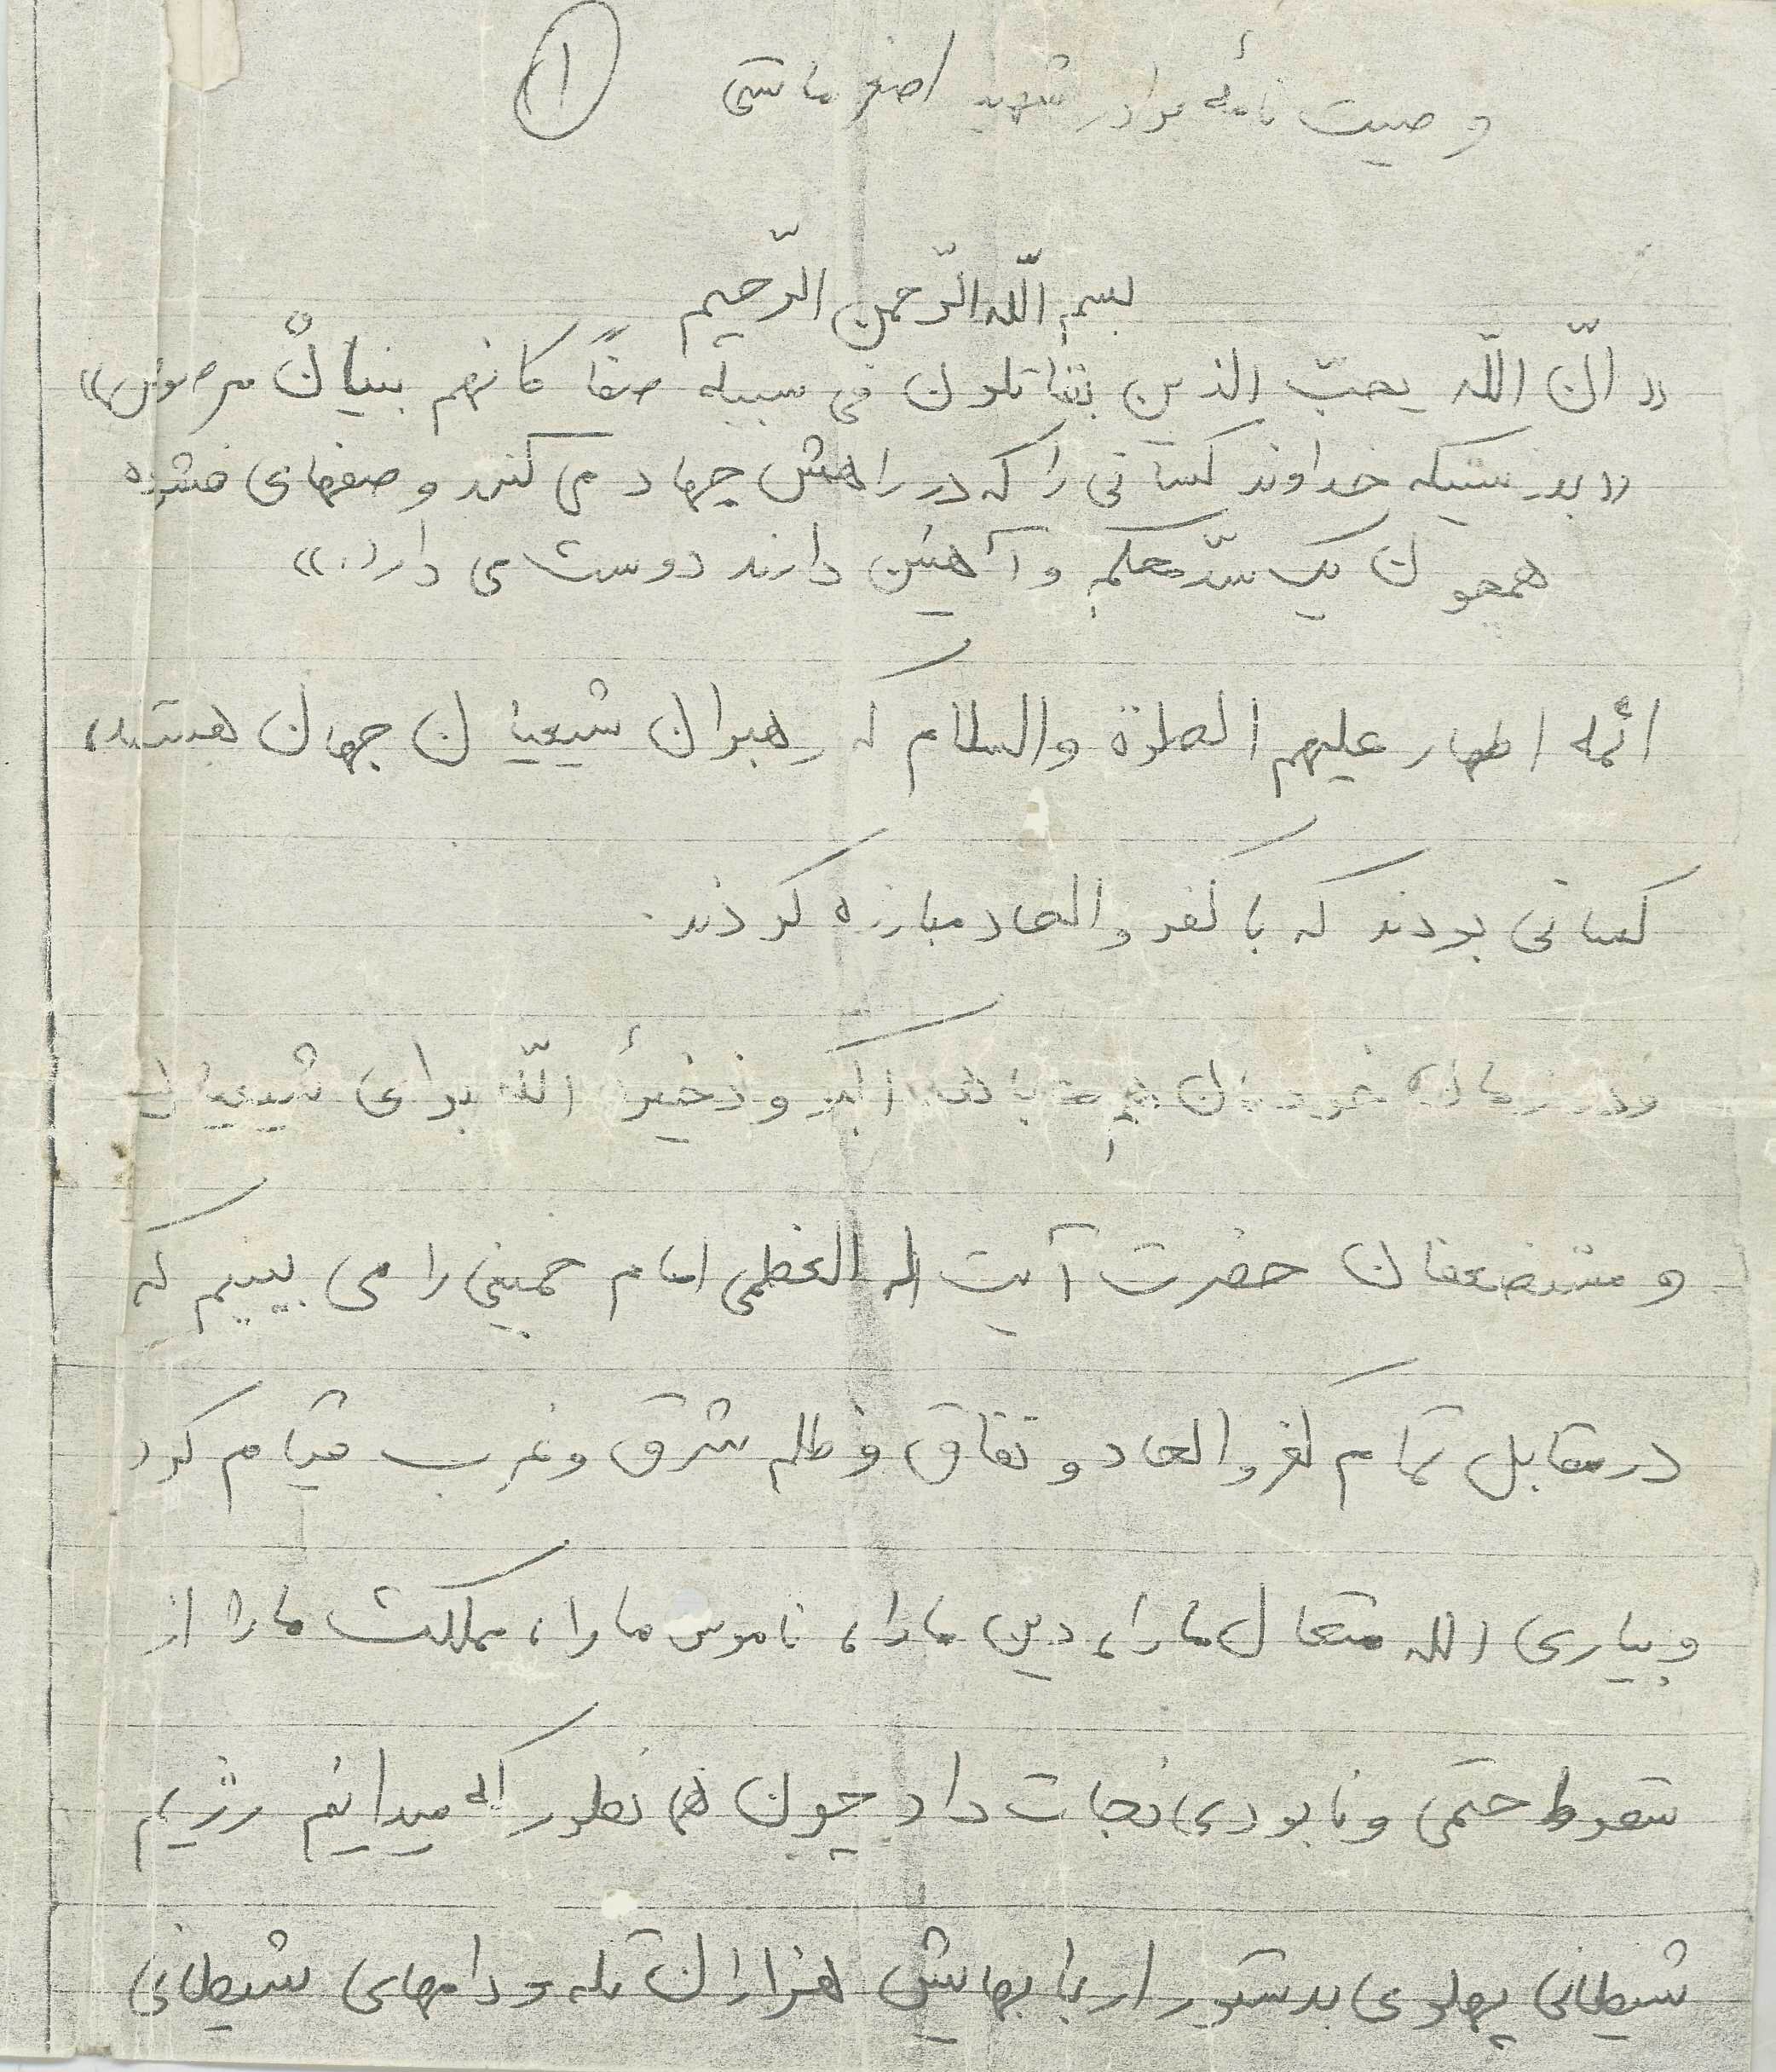 وصیت نامهٔ برادر شهید اصغر ۱
بسم اللّه الرّحمن الرّحیم
«انّ اللّه یحبّ الذین یقاتلون فی سبیله صفاً کانهم بنیانٌ مرصوص»
«بدرستیکه خداوند کسانی را که در راهش جهاد می کنند و صفهای فشرده
همچون یک سدّ محکم و آهنین دارند دوست می دارد.»
ائمه اطهار علیهم الصلوة والسلام که رهبران شیعیان جهان هستند،
کسانی بودند که با کفر و الحاد مبارزه کردند.
و در زمان خودمان اکبر و ذخیرهٔ اللّه برای شیعیان
و مستضعفان حضرت آیت اله العظمی امام خمینی را می بینیم که
در مقابل تمام کفر و الحاد و نفاق و ظلم شرق و غرب قیام کرد
و بیاری الله متعال ما را، دین ما را، ناموس ما را، مملکت ما را از
سقوط حتمی و نابودی نجات داد چون همانطور که میدانیم رژیم
شیطانی پهلوی بدستور اربابهایش هزاران تله و دامهای شیطانی